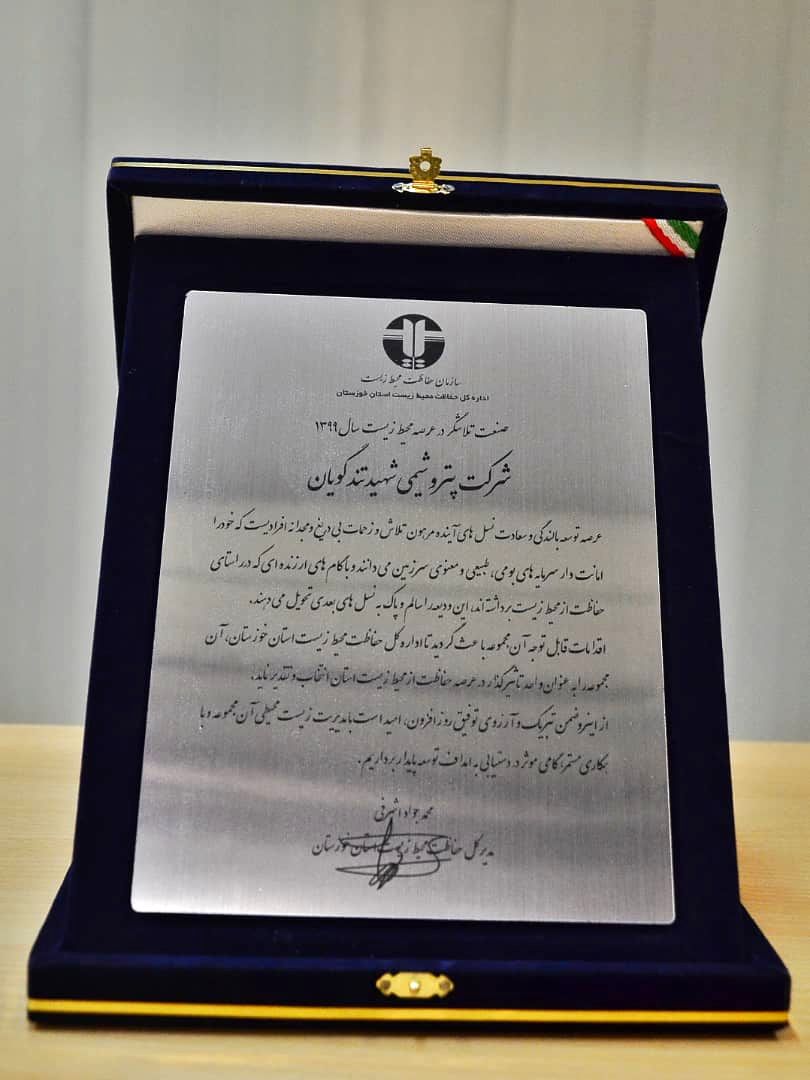 سازمان حفاظت محیط زیست
اداره کل حفاظت محیط زیست استان خوزستان
صنعت تلاشگر در عرصه محیط زیست سال ۱۳۹۹
شرکت پتروشیمی شهید تندگویان
عرصه توسعه بالندگی و سعادت نسل های آینده مرهون تلاش و زحمات بی دریغ و مجدانه افرادیست که خود را
امانت دار سرمایه های بومی، طبیعی و معنوی سرزمین می دانند و با گام های ارزنده ای که در راستای
حفاظت از محیط زیست برداشته اند، این ودیعه را سالم و پاک به نسل های بعدی تحویل می دهند.
اقدامات قابل توجه آن مجموعه باعث گردید تا اداره کل حفاظت محیط زیست استان خوزستان، آن
مجموعه را به عنوان واحد تاثیرگذار در عرصه حفاظت از محیط زیست استان انتخاب و تقدیر نماید.
از اینرو ضمن تبریک و آرزوی توفیق روز افزون، امید است با مدیریت زیست محیطی آن مجموعه و با
همکاری مستمر، گامی موثر در دستیابی به اهداف توسعه پایدار برداریم.
محمد جواد اشرفی
مدیر کل حفاظت محیط زیست استان خوزستان